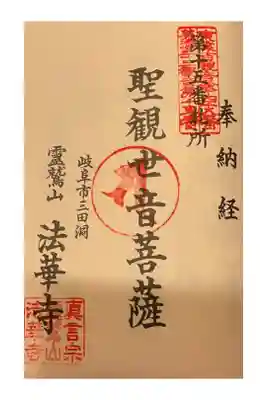 奉納経
第十五番札所
聖観世音菩薩
岐阜市三田洞
霊鷲山
法華寺
真言宗